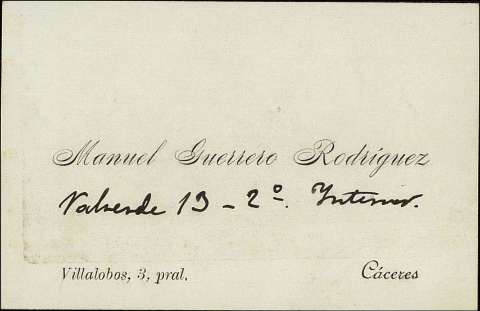 Manuel Guerrero Rodríguez
Valverde 13 - 2º. Interior.
Villalobos, 3, pral.
Cáceres